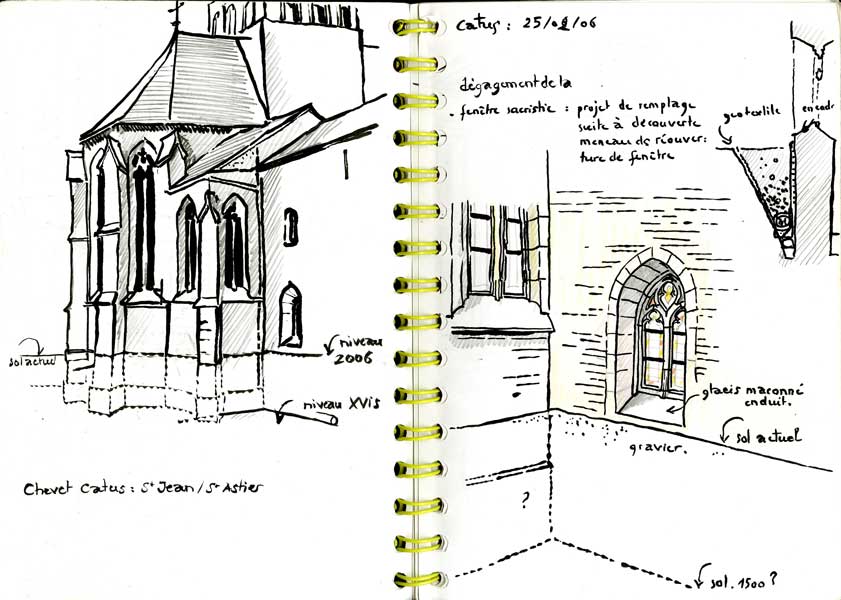 sol actuel
niveau
2006
niveau XVIs
Chevet Catus : St Jean / St Astier
Catus : 25/08/06
dégagement de la
fenêtre sacristie : projet de remplage
suite à découverte
meneau de réouver-
ture de fenêtre
geotextile
enduit
glacis maconné
enduit.
sol actuel
gravier.
?
sol. 1500 ?